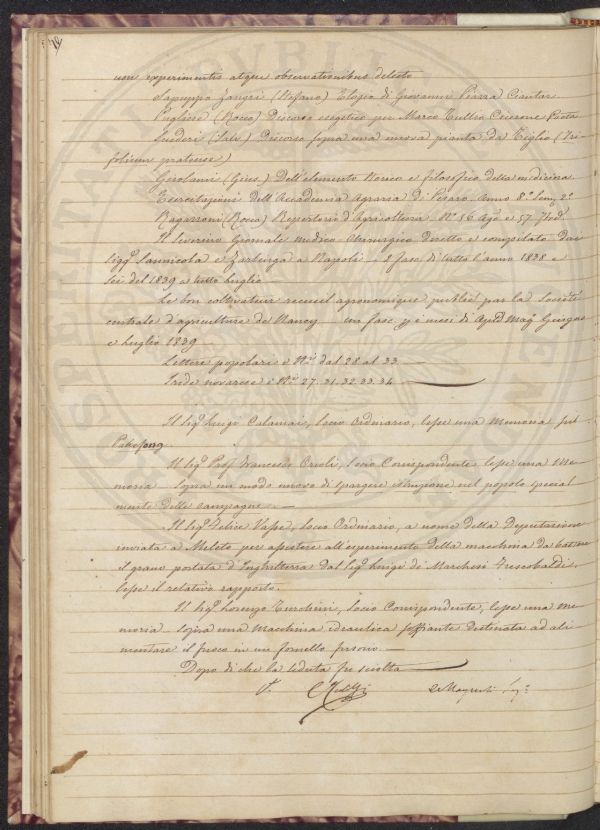 non experimentis atque observationibus detecto
Sapuppo Zangri (Stefano) Elogio di Giovanni Pietra Ciantar
Pugliese (Rocco) Discorso esegetico per Marco Tullio Cicerone Poeta
Scuderi (Salv.) Discorso sopra una nuova pianta da Tiglio (Tri-
folium pratense)
Girolami (Gius.) Dell'elemento Storico e filosofico della medicina
Esercitazioni dell'Accademia Agraria di Pesaro. Anno 8.o Sem. 2.o
Ragazzoni (Rocco) Repertorio d'Agricoltura N.o 56 Ago e 57.
Il Severino Giornale medico chirurgico diretto e compilato dai
Sigg.i Lannicola e Zarlenga a Napoli è 2 fasc. di tutto l'anno 1838 e
sei del 1839 a tutto luglio
Le bon cultivateur recueil agronomique publié par la Société
centrale d'agriculture de Nancy un fasc. pei mesi di April Mag. Giugno
e Luglio 1839
Letture popolari i N.i dal 28 al 33
Iride novarese i N.i 27. 31. 32. 33. 34
Il Sig.r Luigi Calamai, Socio Ordinario, lesse una Memoria sul
Il Sig.r Prof. Francesco Orioli, Socio Corrispondente, lesse una Me-
moria sopra un modo nuovo di spargere istruzione nel popolo special
mente delle campagne.
Il Sig.r Felice Vasse, Socio Ordinario, a nome della Deputazione
inviata a Meleto per assistere all'esperimento della macchina da battere
il grano portata d'Inghilterra dal Sig.r Luigi de Marchesi Frescobaldi,
lesse il relativo rapporto.
Il Sig.r Lorenzo Turchini, Socio Corrispondente, lesse una Me-
moria sopra una Macchina idraulica soffiante destinata ad ali-
mentare il fuoco in un fornello fusorio.
Dopo di che la seduta fu sciolta
C Ridolfi